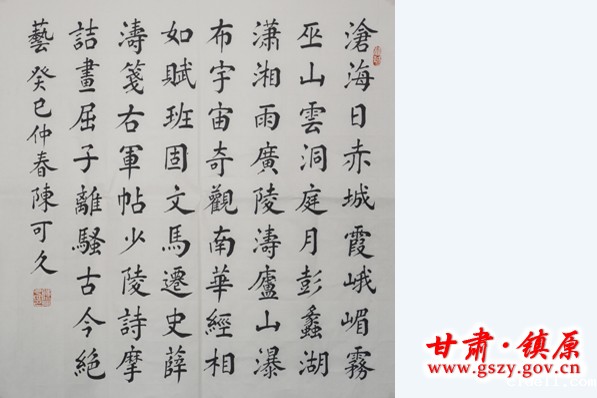 滄海日赤城霞峨嵋霧
巫山雲洞庭月彭蠡湖
瀟湘雨廣陵濤廬山瀑
布宇宙奇觀南華經相
如賦班固文馬遷史薛
濤箋右軍帖少陵詩摩
詰畫屈子離騷古今絶
藝癸巳仲春陳可久
甘肃·镇原
www.gszy.gov.cn